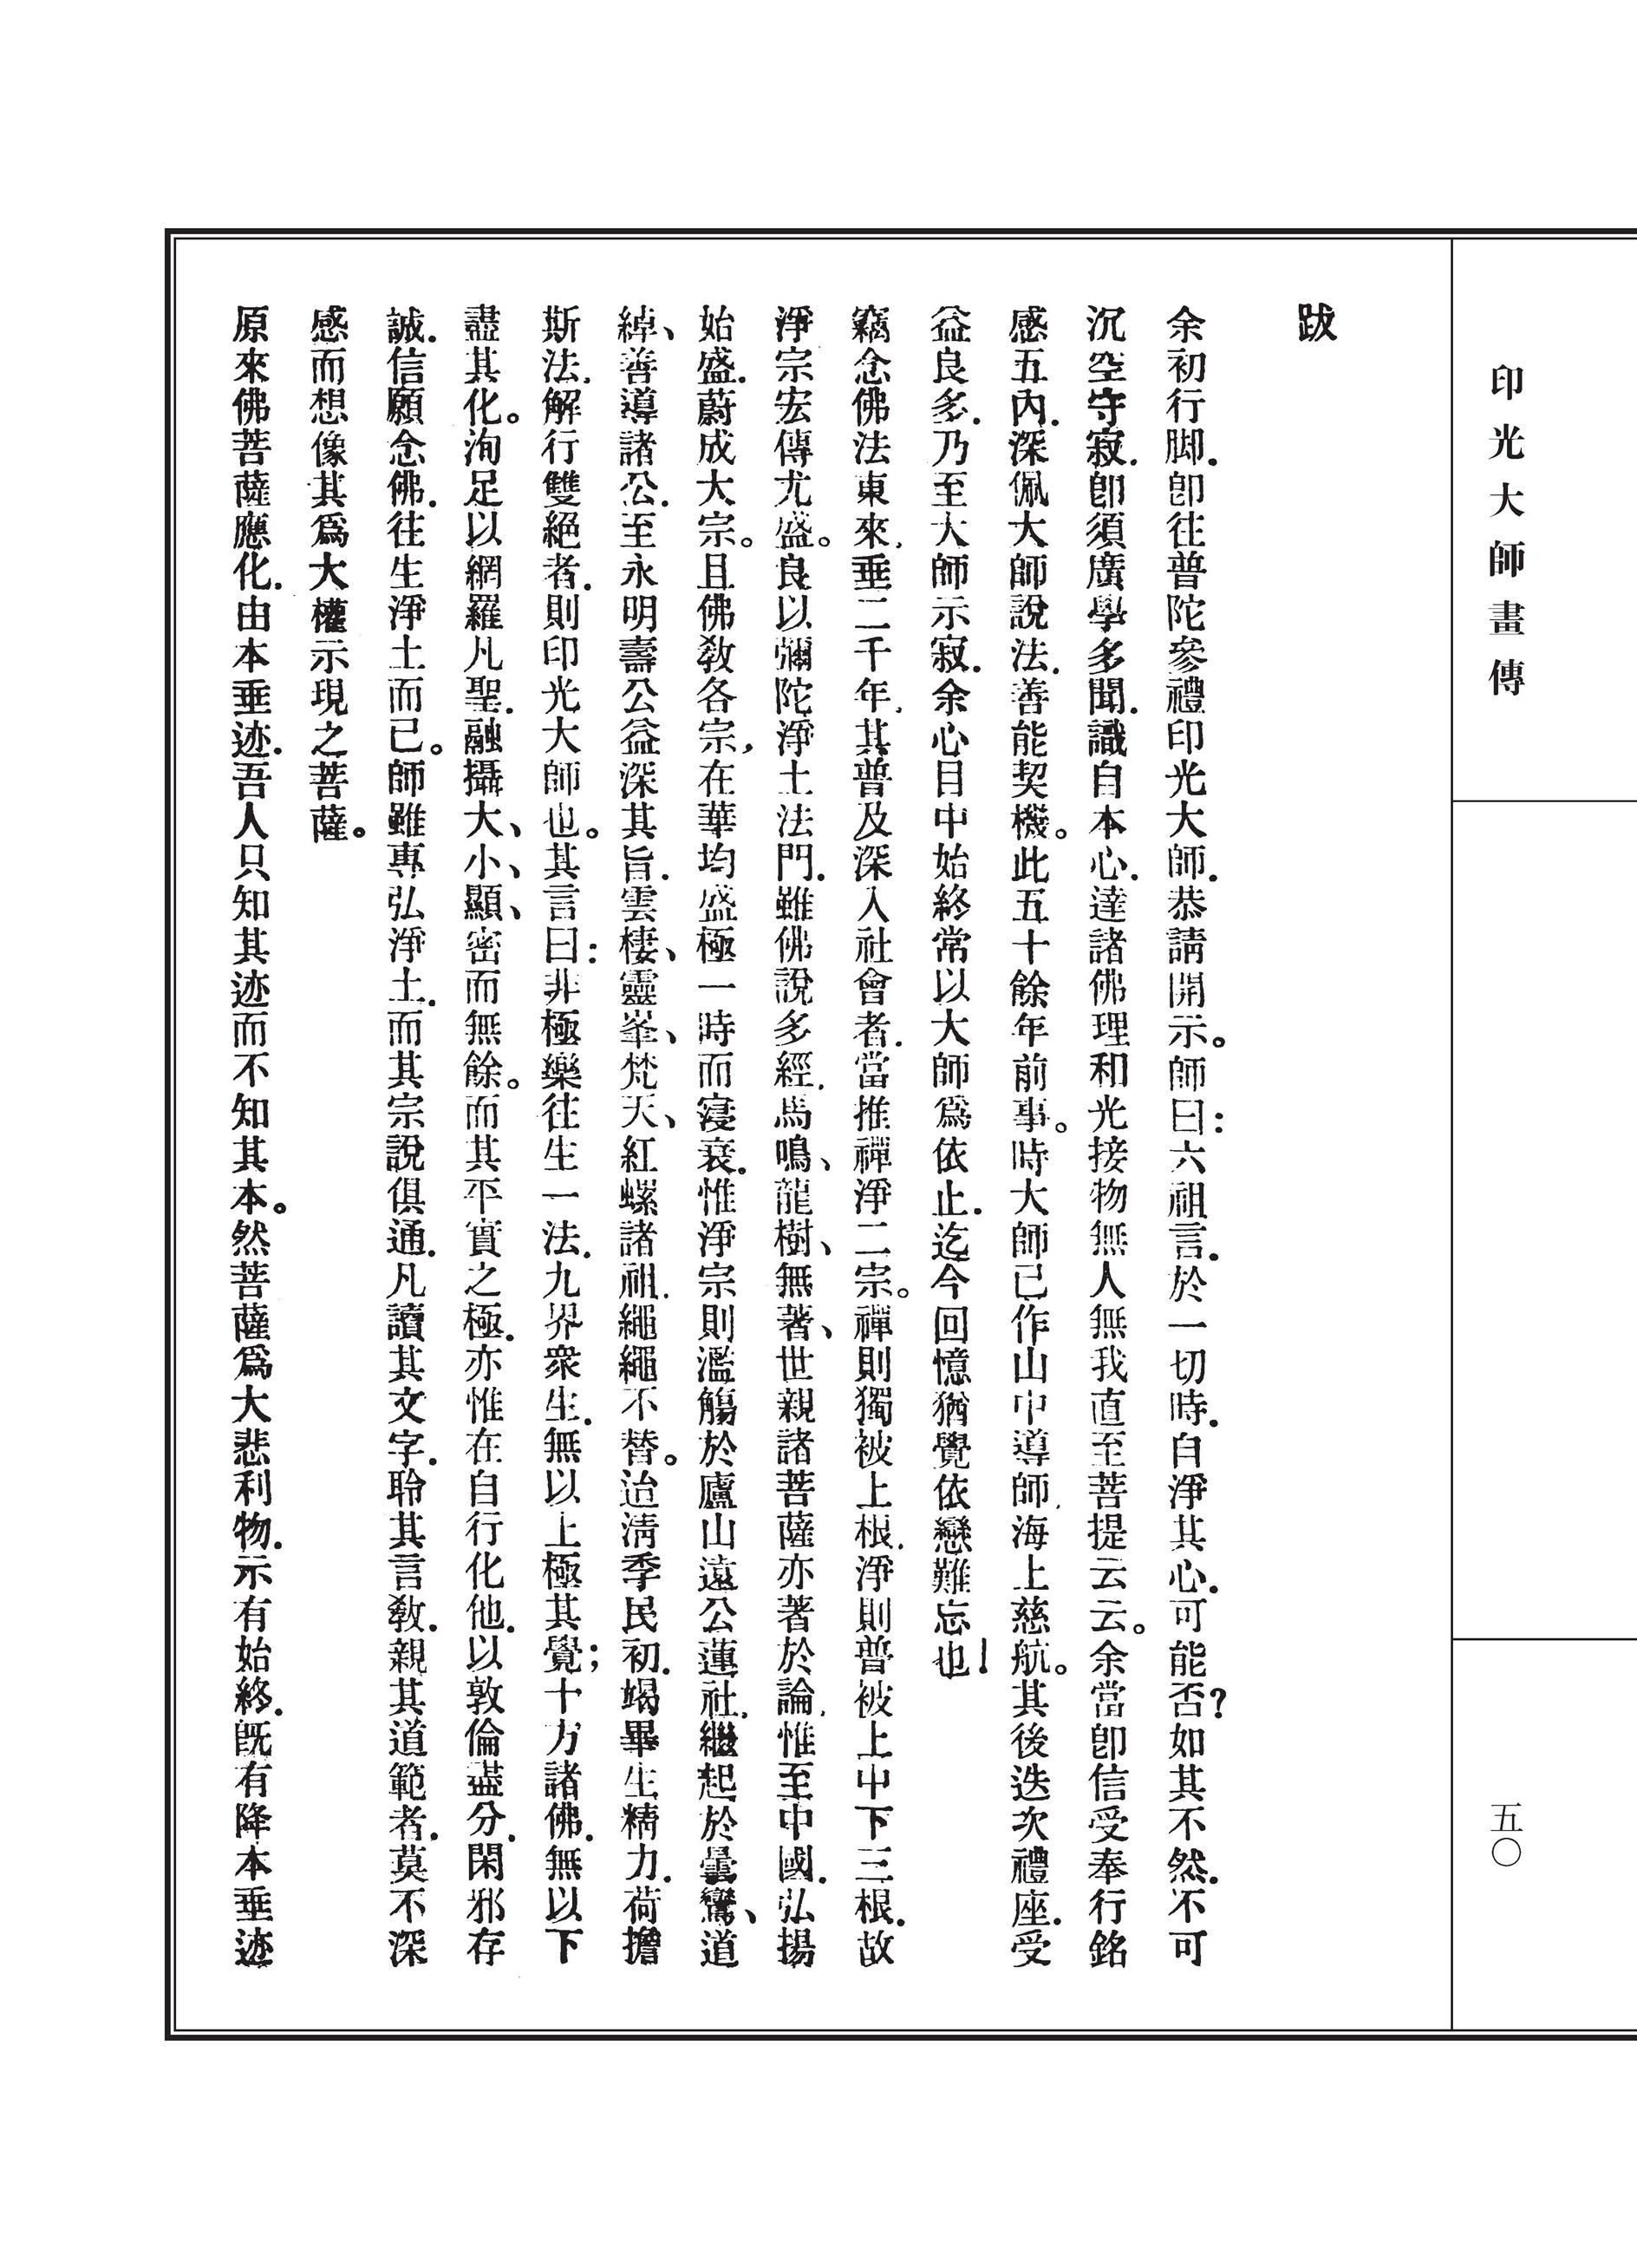 印光大師畫傳
五〇
跋
余初行脚.卽往普陀參禮印光大師.恭請開示。師曰:六祖言.於一切時.自淨其心.可能否?如其不然.不可
沉空守寂.卽須廣學多聞.識自本心.達諸佛理和光接物無人無我直至菩提云云。余當卽信受奉行銘
感五內.深佩大師說法.善能契機。此五十餘年前事。時大師已作山中導師.海上慈航。其後迭次禮座.受
益良多.乃至大師示寂.余心目中始終常以大師爲依止.迄今回憶猶覺依戀難忘也!
竊念佛法東來.垂二千年.其普及深入社會者.當推禪淨二宗。禪則獨被上根.淨則普被上中下三根.故
淨宗宏傳尤盛。良以彌陀淨土法門.雖佛說多經.馬鳴、龍樹、無著、世親諸菩薩亦著於論.惟至中國.弘揚
始盛.蔚成大宗。且佛敎各宗,在華均盛極一時而寖衰.惟淨宗則濫觴於廬山遠公蓮社.繼起於曇鸞、道
綽、善導諸公.至永明壽公益深其旨.雲棲、靈峯、梵天、紅螺諸祖.繩繩不替。迨淸季民初.竭畢生精力.荷擔
斯法.解行雙絕者.則印光大師也。其言曰:非極樂往生一法.九界衆生.無以上極其覺;十方諸佛.無以下
盡其化。洵足以網羅凡聖.融攝大、小、顯、密而無餘。而其平實之極.亦惟在自行化他.以敦倫盡分.閑邪存
誠.信願念佛.往生淨土而已。師雖專弘淨土.而其宗說俱通.凡讀其文字.聆其言敎.親其道範者.莫不深
感而想像其爲大權示現之菩薩。
原來佛菩薩應化.由本垂迹.吾人只知其迹而不知其本。然菩薩爲大悲利物.示有始終.旣有降本垂迹